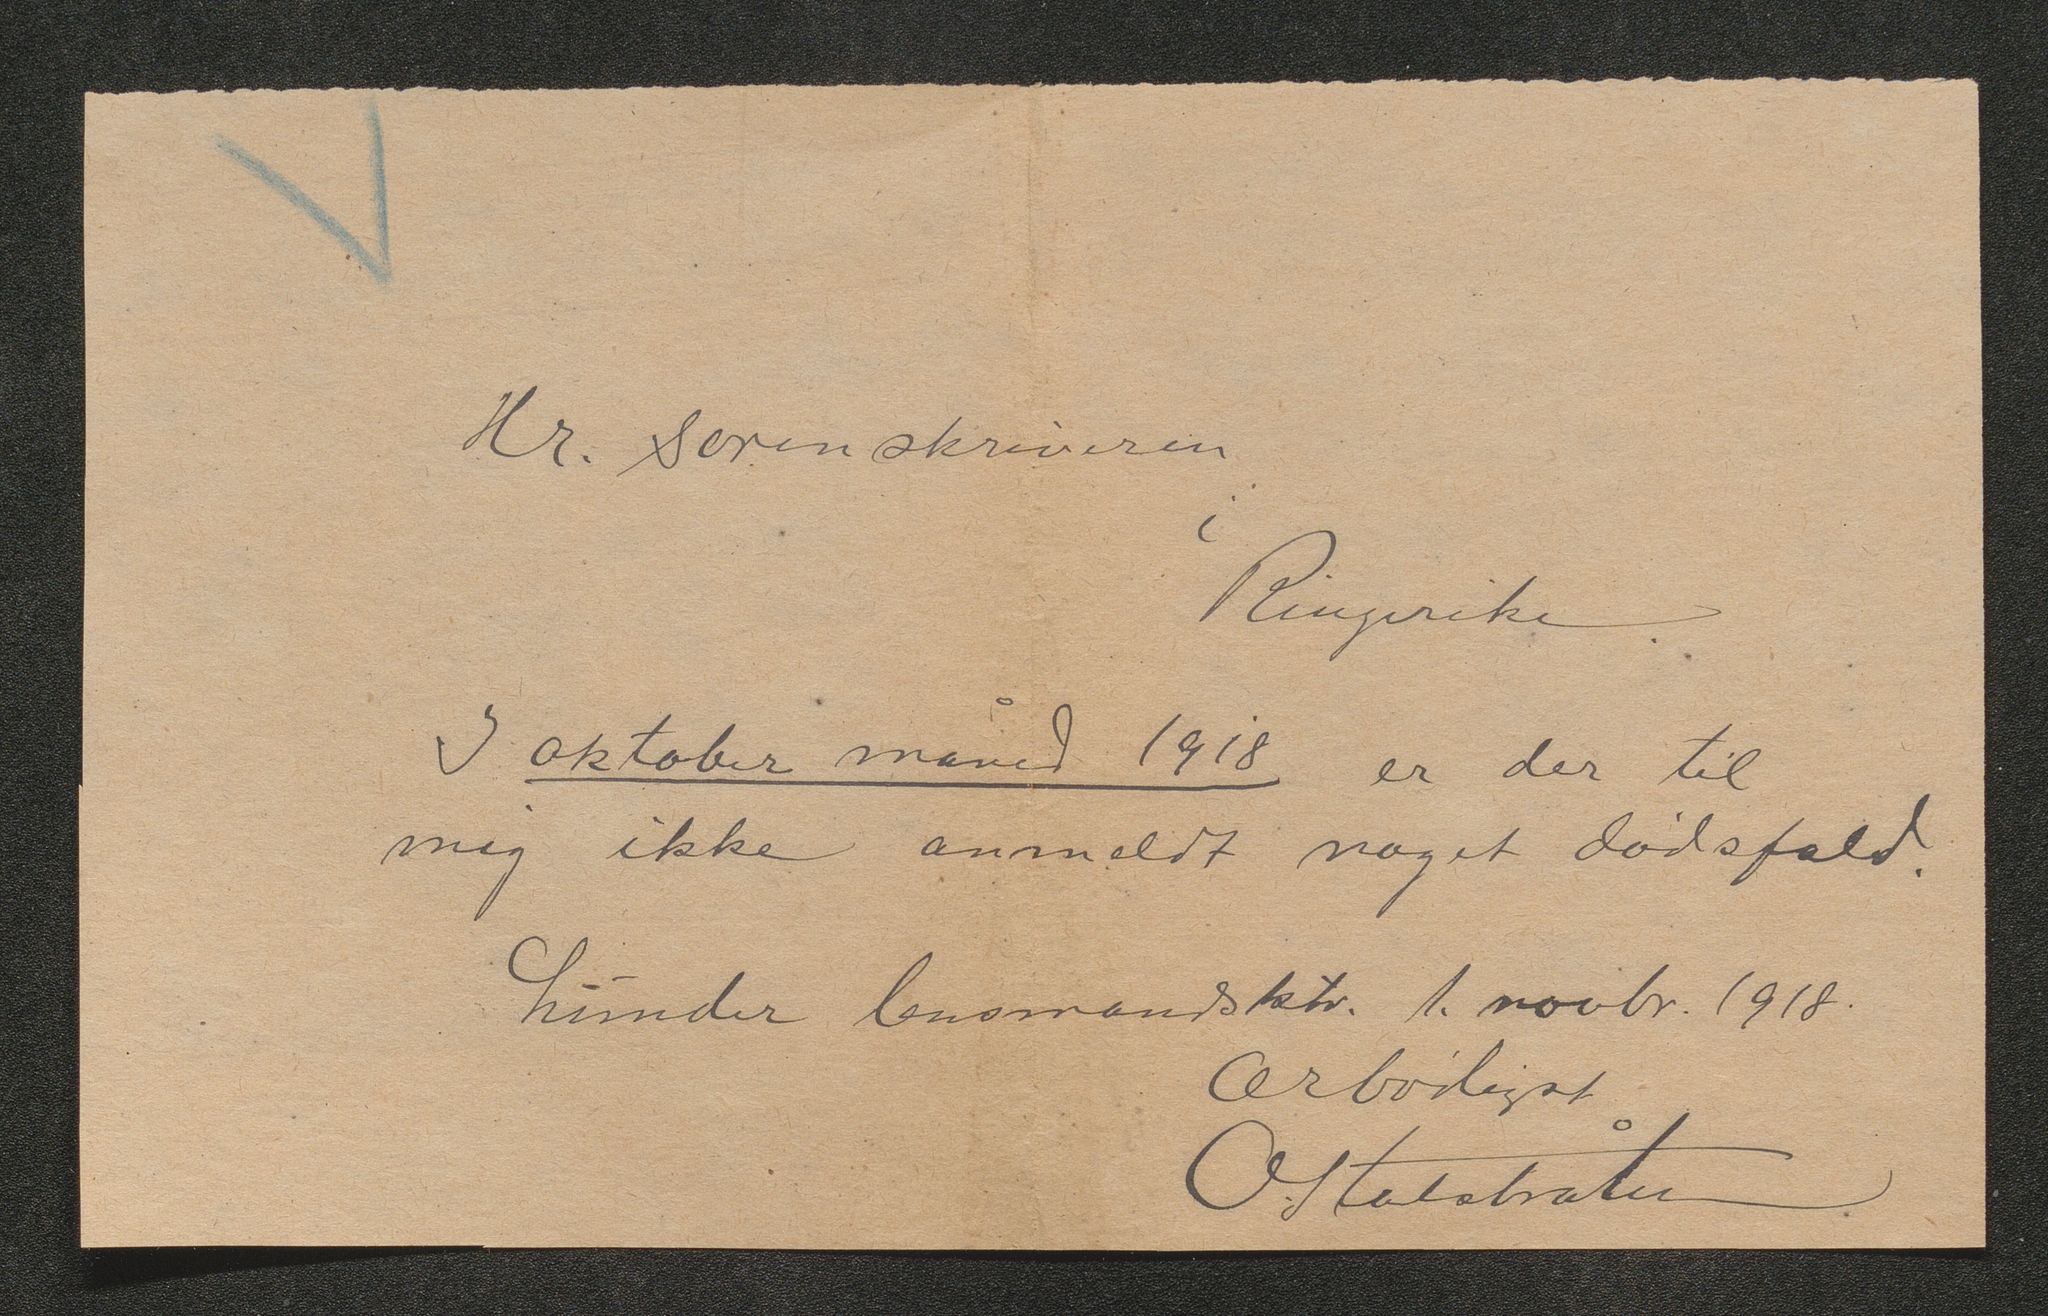 Hr. Sorenskriveren
i
Ringerike.
I oktober måned 1918 er der til
mig ikke anmeldt noget dødsfald.
Lunder lensmandsktr. 1. novbr. 1918.
Ærbødigst